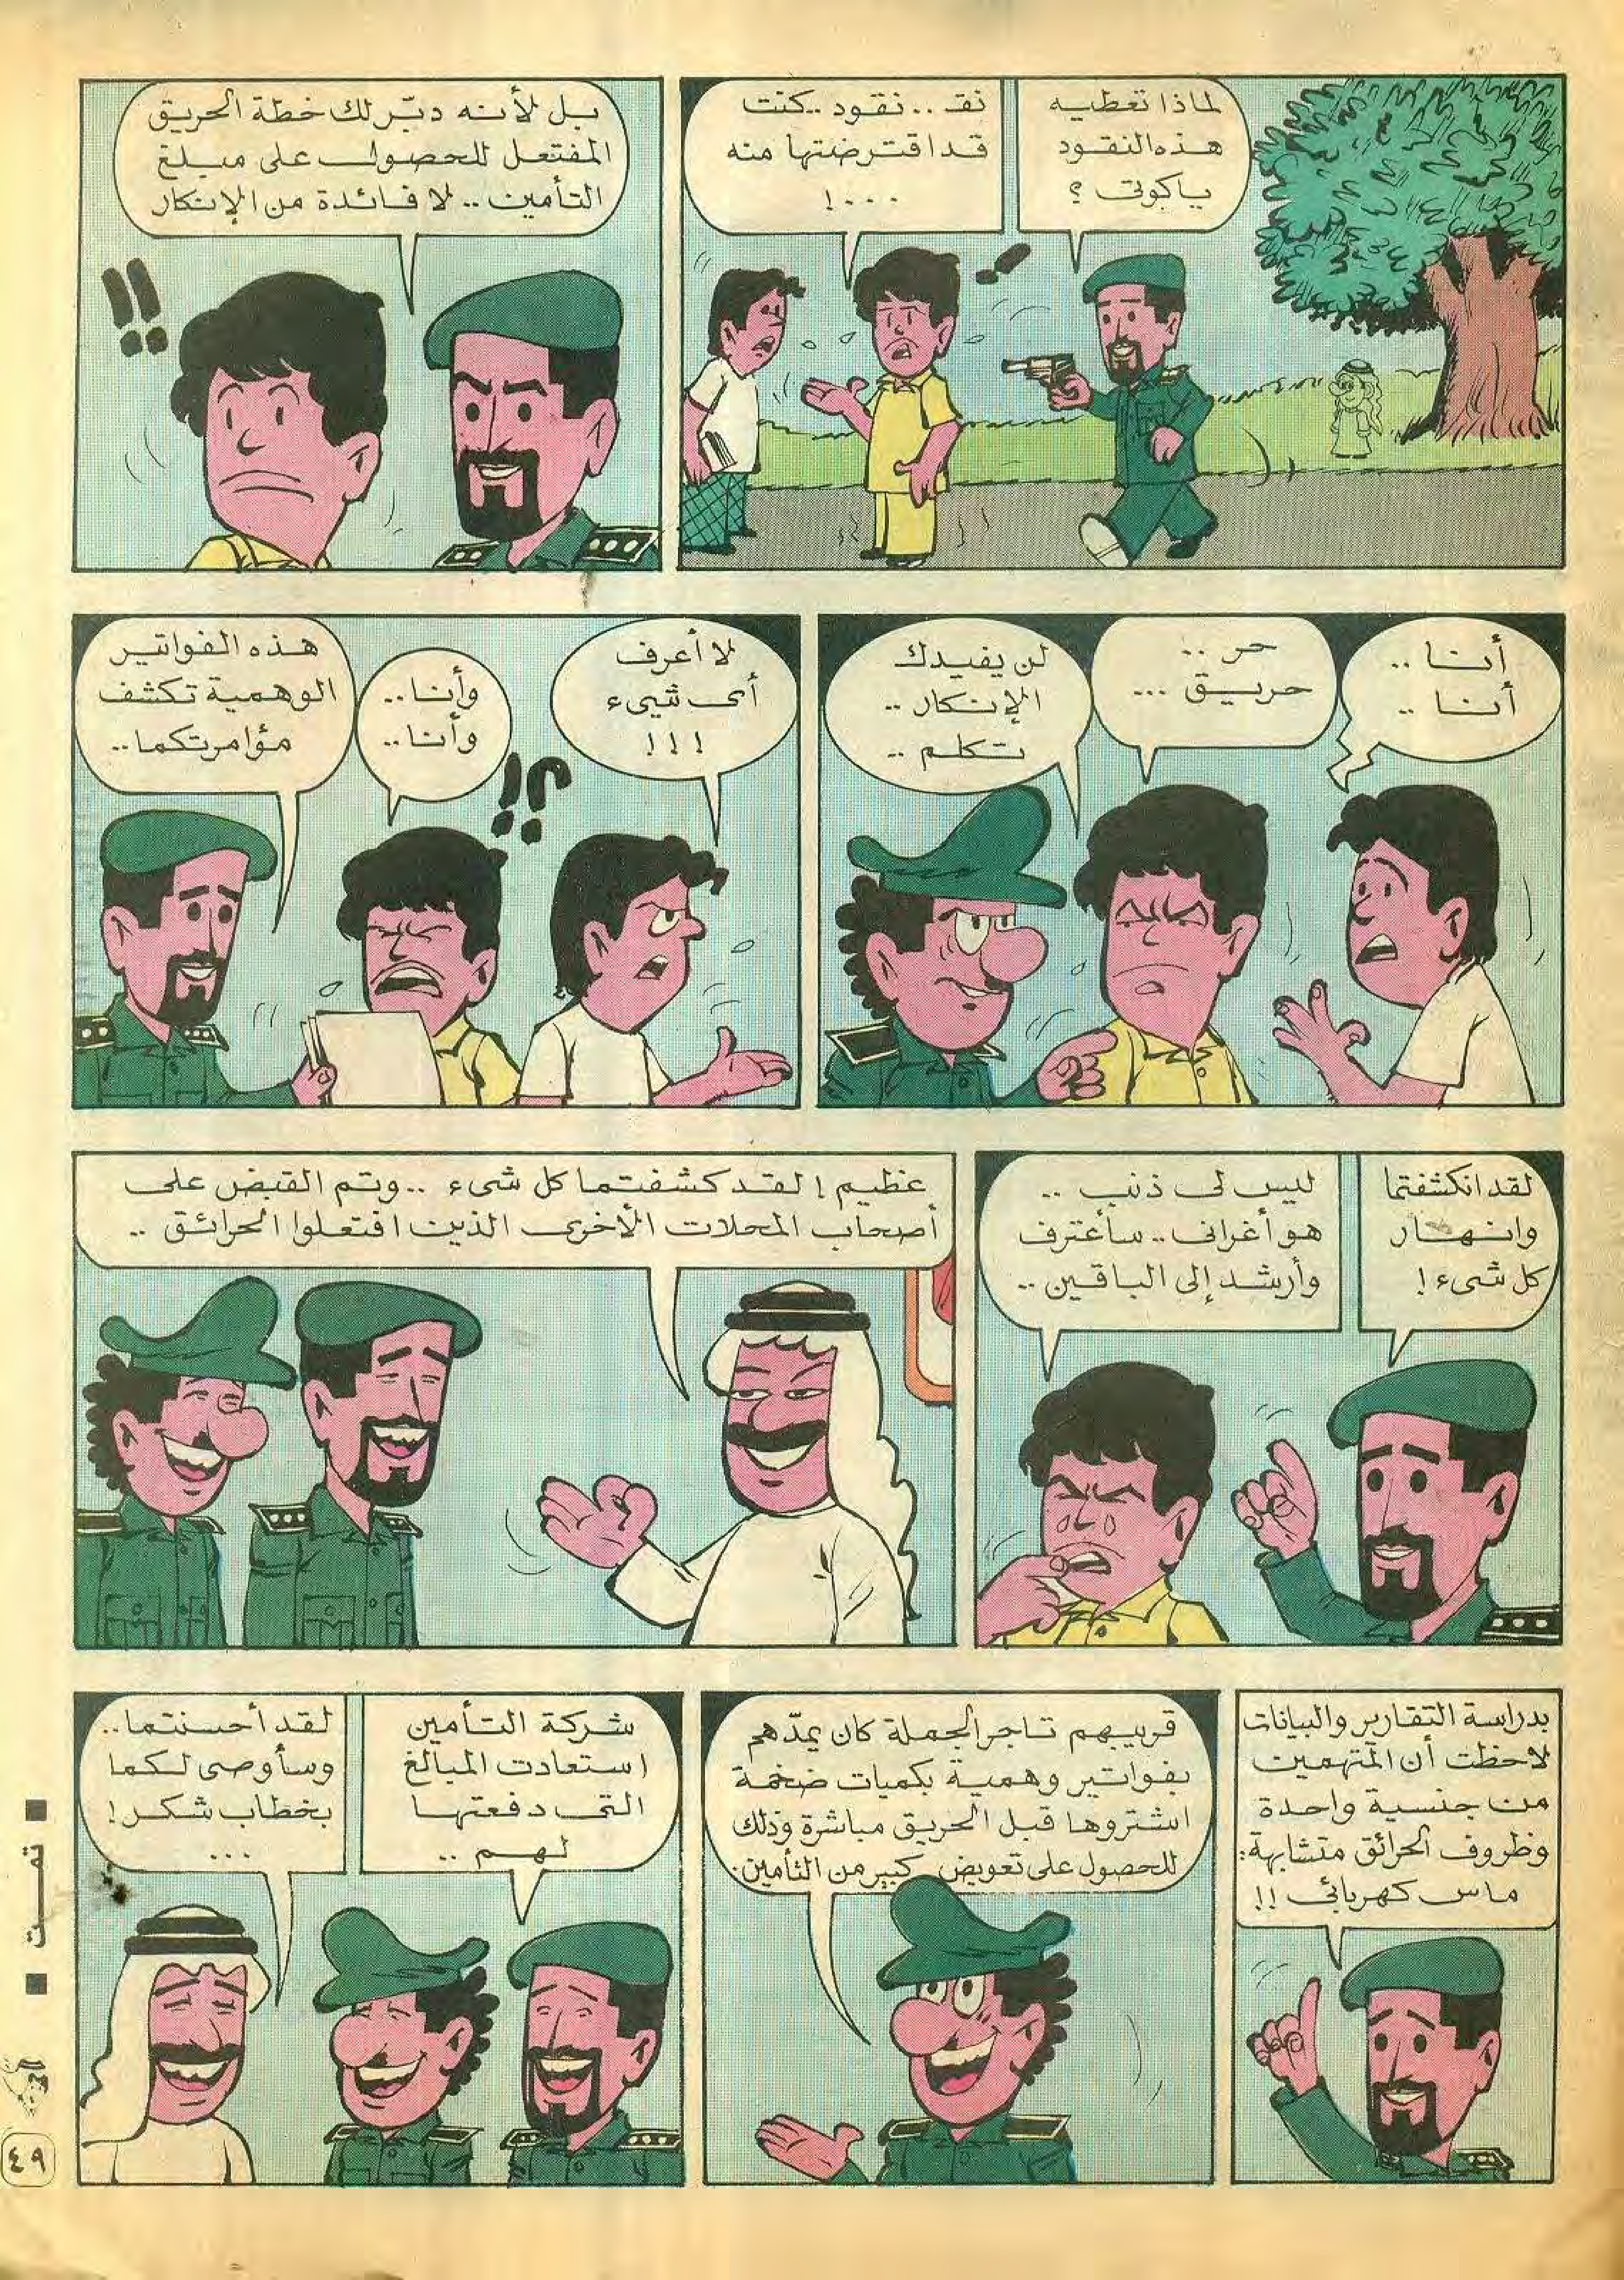 لماذا تعطيه
هذه النقود
يا كوتى ؟
نقـ .. نقود .. كنت
قد اقترضتها منه
...!
بل لأنه دبّر لك خطة الحريق
المفتعل للحصول على مبلغ
التأمين .. لا فائدة من الإنكار
!!
أنا ..
أنا ..
حر ..
حريق ...
لن يفيدك
الإنكار ..
تكلم ..
لا أعرف
أى شيىء
!!!
؟!
وأنا ..
وأنا ..
هذه الفواتير
الوهمية تكشف
مؤامرتكما ..
لقد انكشفتما
وانهار
كل شىء !
ليس لى ذنب ..
هو أغرانى .. سأعترف
وأرشد إلى الباقين ..
عظيم ! لقد كشفتما كل شىء .. وتم القبض على
أصحاب المحلات الأخرى الذين افتعلوا الحرائق ..
بدراسة التقارير والبيانات
لاحظت أن المتهمين
من جنسية واحدة
وظروف الحرائق متشابهة :
ماس كهربائى !!
قريبهم تاجر الجملة كان يمدّهم
بفواتير وهمية بكميات ضخمة
اشتروها قبل الحريق مباشرة وذلك
للحصول على تعويض كبير من التأمين .
شركة التأمين
استعادت المبالغ
التى دفعتها
لهم ..
لقد أحسنتما ..
وسأوصى لكما
بخطاب شكر !
...
■ تمت ■
٤٩